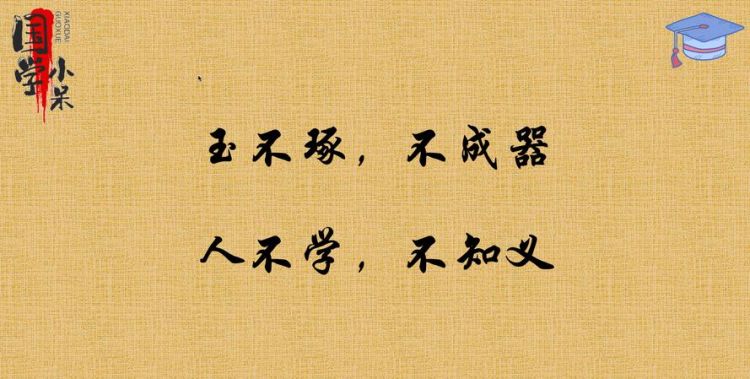 国学
小呆
XIAODAI
GUOXUE
玉不琢，不成器
人不学，不知义